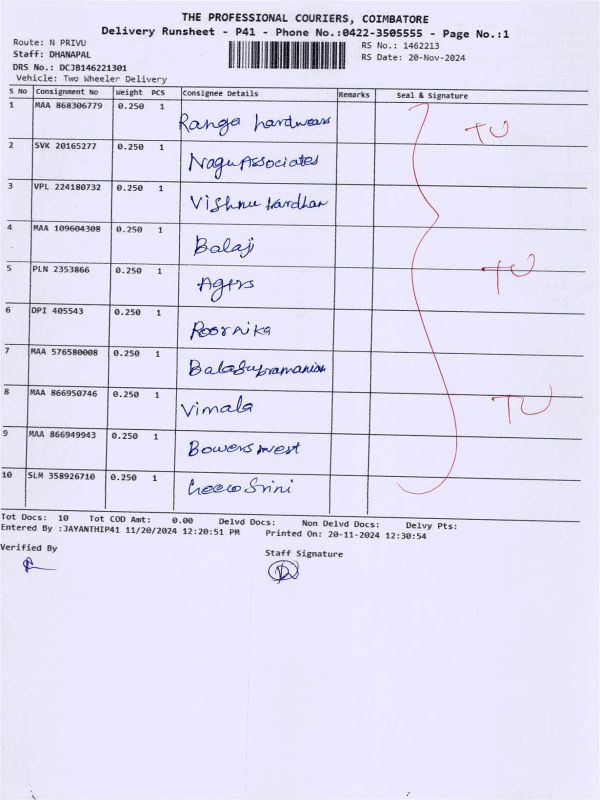 THE PROFESSIONAL COURIERS, COIMBATORE
Delivery Runsheet - P41 - Phone No.:0422-3505555 - Page No.:1
Route: N PRIVU
RS No.: 1462213
Staff: DHANAPAL
RS Date: 20-Nov-2024
DRS No.: DCJB146221301
Vehicle: Two Wheeler Delivery
S No Consignment No Weight PCS Consignee Details Remarks Seal & Signature
1 MAA 868306779 0.250 1 Ranga hardwears TU
2 SVK 20165277 0.250 1 Nagu Associates
3 VPL 224180732 0.250 1 Vishnu Hardhan
4 MAA 109604308 0.250 1 Balaji
5 PLN 2353866 0.250 1 Agers TU
6 DPI 405543 0.250 1 Poornika
7 MAA 576580008 0.250 1 Balasupramanian
8 MAA 866950746 0.250 1 Vimala TU
9 MAA 866949943 0.250 1 Bowers
10 SLM 358926710 0.250 1 Srini
Tot Docs: 10 Tot COD Amt: 0.00 Delvd Docs: Non Delvd Docs: Delvy Pts:
Entered By :JAYANTHIP41 11/20/2024 12:20:51 PM Printed On: 20-11-2024 12:30:54
Verified By
Staff Signature